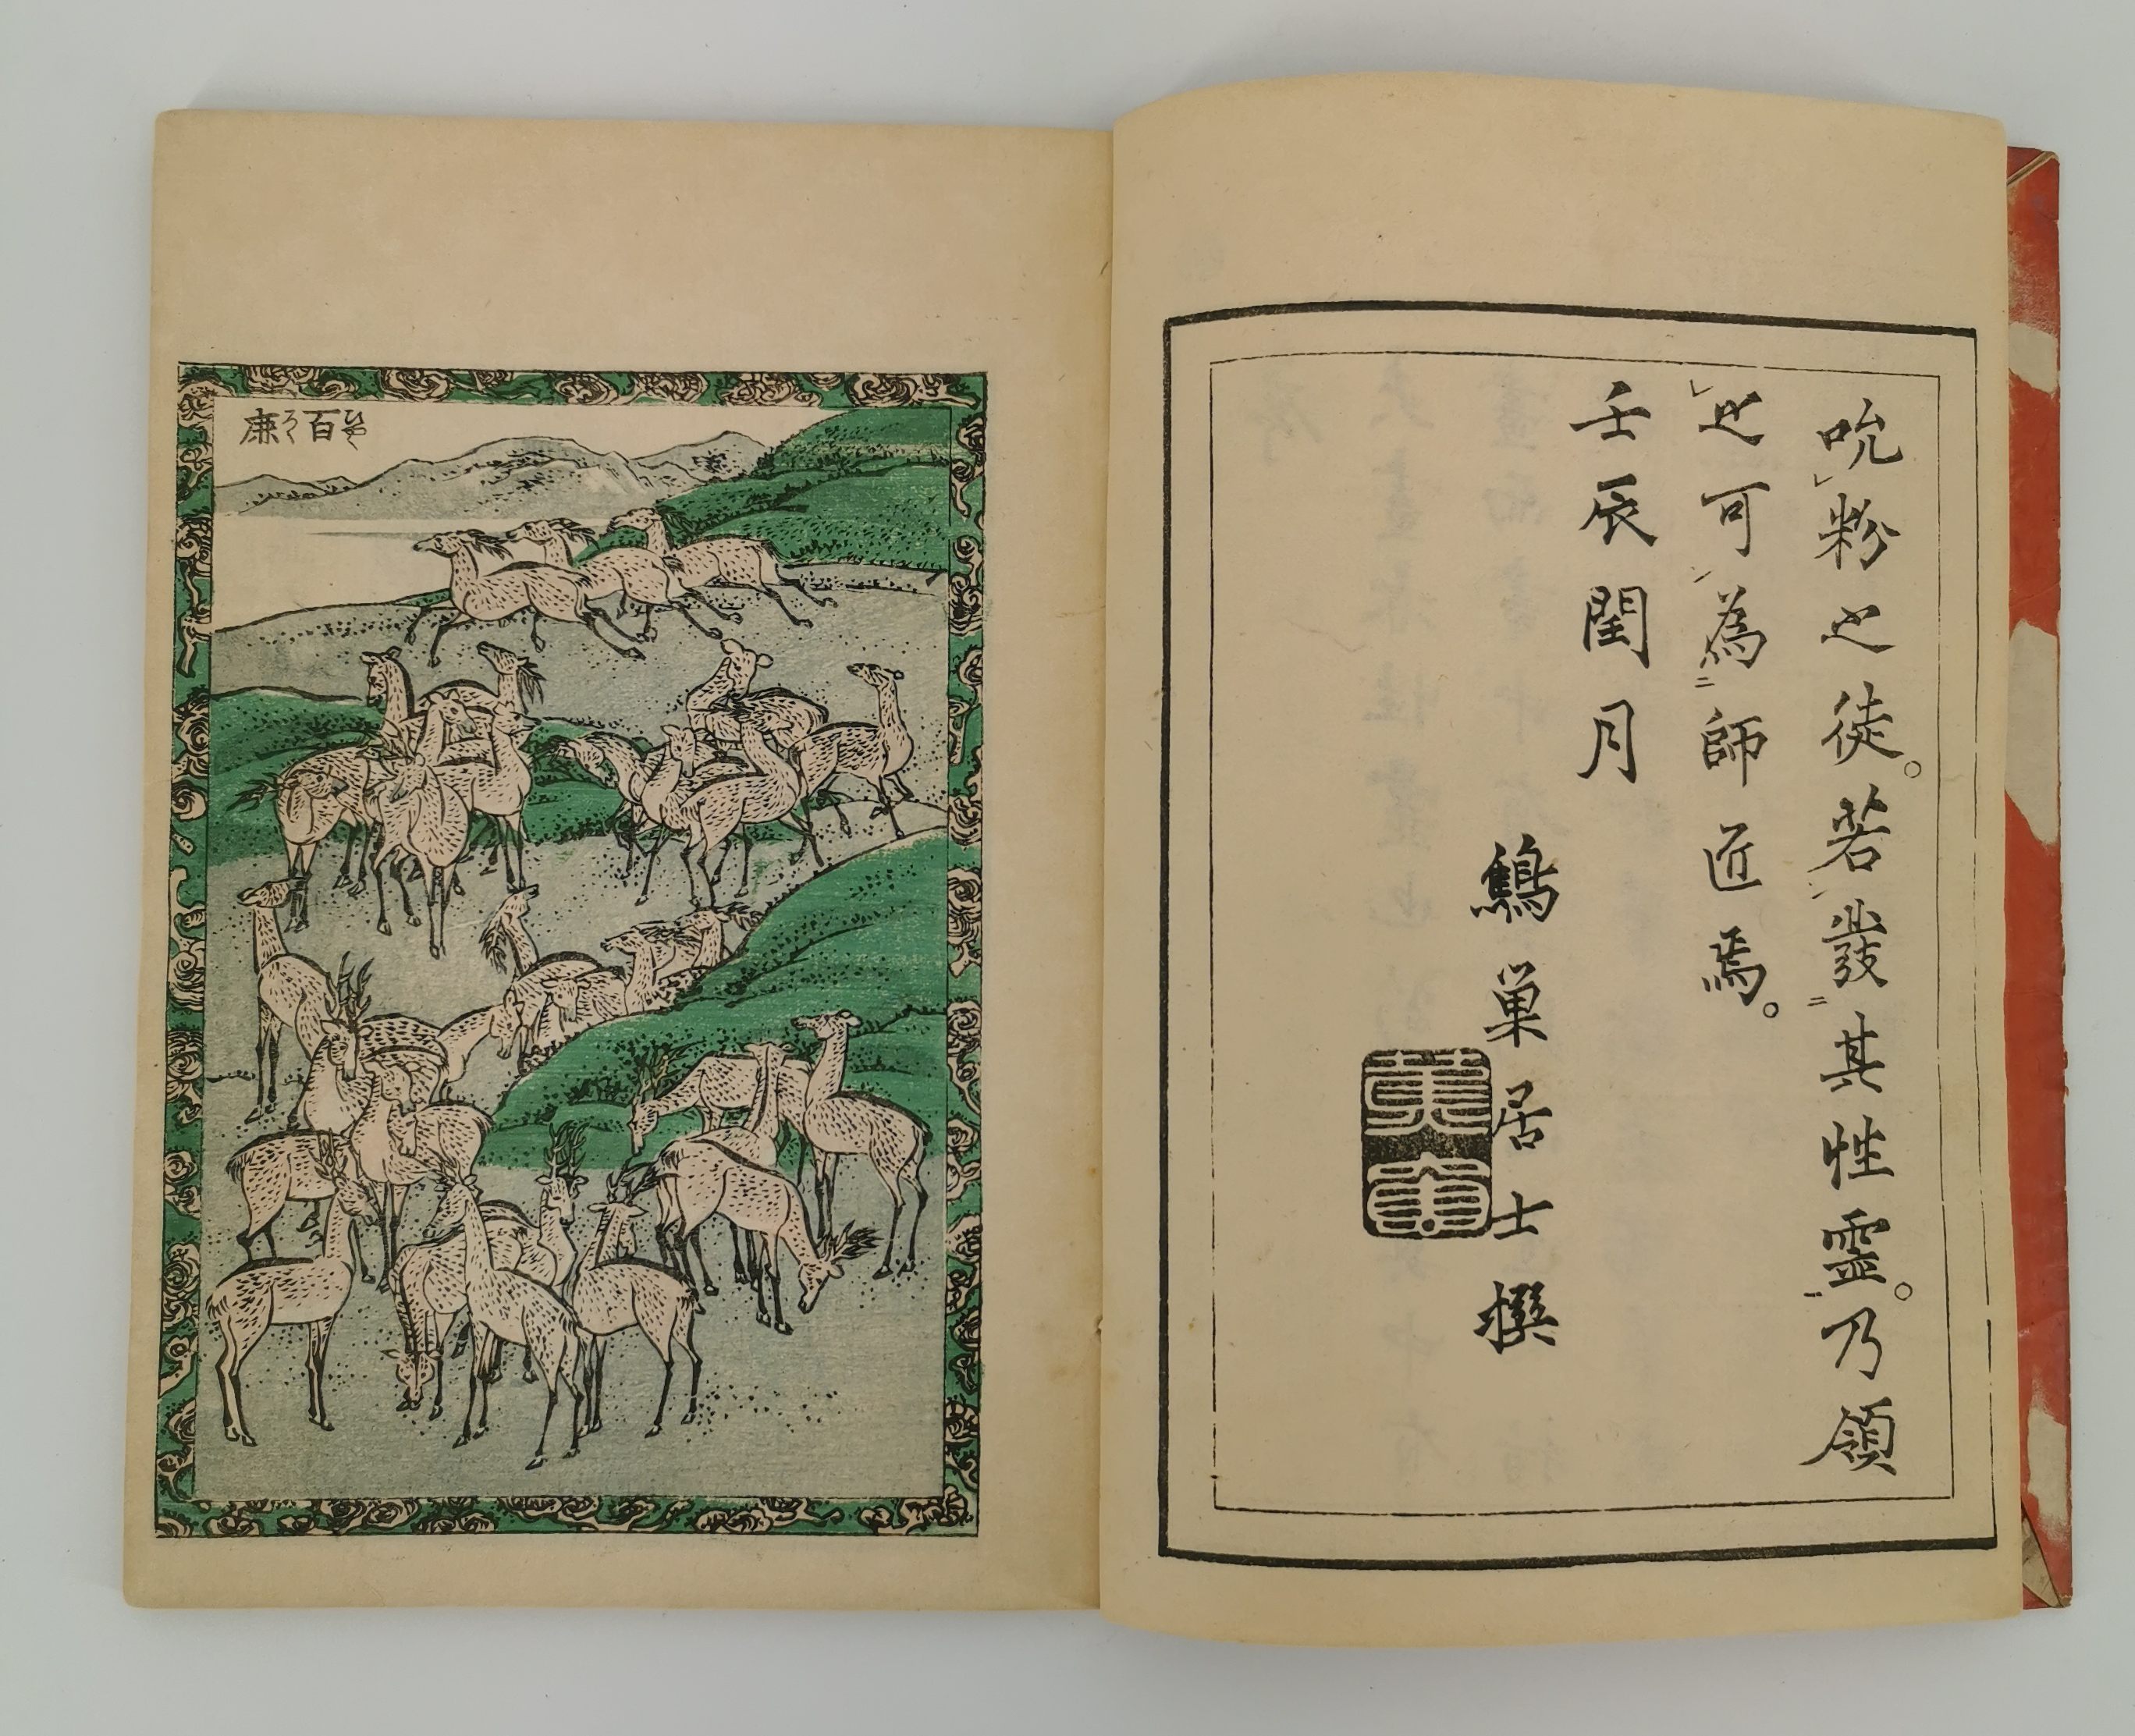 吮粉之徒。若發其性霊。乃領
之可為師匠焉。
壬辰閏月
鷦巣居士撰
百鹿